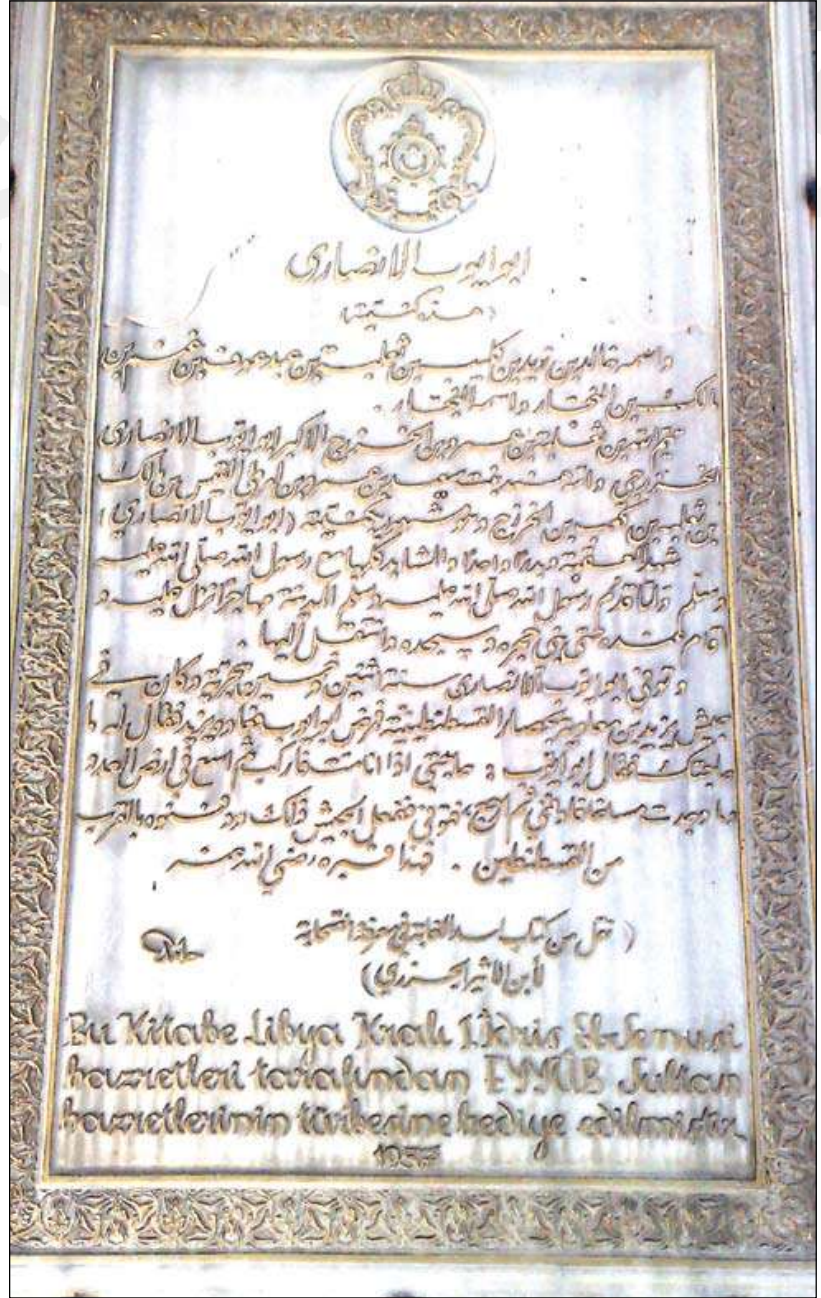 ابو ايوب الانصارى
(هذه كنيته)
واسمه خالد بن زيد بن كليب بن ثعلبة بن عبد عوف بن غنم بن
مالك بن النجار واسم النجار .
تيم الله بن ثعلبة بن عمرو بن الخزرج الاكبر ابو ايوب الانصارى
الخزرجي وامه هند بنت سعد بن عمرو بن امرئ القيس بن مالك
بن ثعلبه بن كعب بن الخزرج وهو مشهور بكنيته (ابو ايوب الانصاري)
شهد العقبة وبدرا واحدا والمشاهد كلها مع رسول الله صلى الله عليه
وسلم ولما قدم رسول الله صلى الله عليه وسلم المدينة مهاجرا نزل عليه و
اقام عنده حتى بنى حجره ومسجده وانتقل اليها .
وتوفي ابو ايوب الانصارى سنة اثنتين وخمسين هجرية وكان في
جيش يزيد بن معاوية القسطنطينية فمرض ابو ايوب يزيد فقال له ما
حاجتك فقال ابو ايوب : حاجتي اذا انا مت فاركب ثم اسع في ارض العدو
ما وجدت مساغا فادفني ثم ارجع، فتوفي ففعل الجيش ذلك ودفنوه بالقرب
من القسطنطين . فهذا قبره رضي الله عنه
( نقل من كتاب اسد الغابة في معرفة الصحابة
لأبن الاثير الجزري)
Bu Kitabe Libya Kralı I. İdris El-Senusi
hazretleri tarafından EYYÛB Sultan
hazretlerinin türbesine hediye edilmiştir.